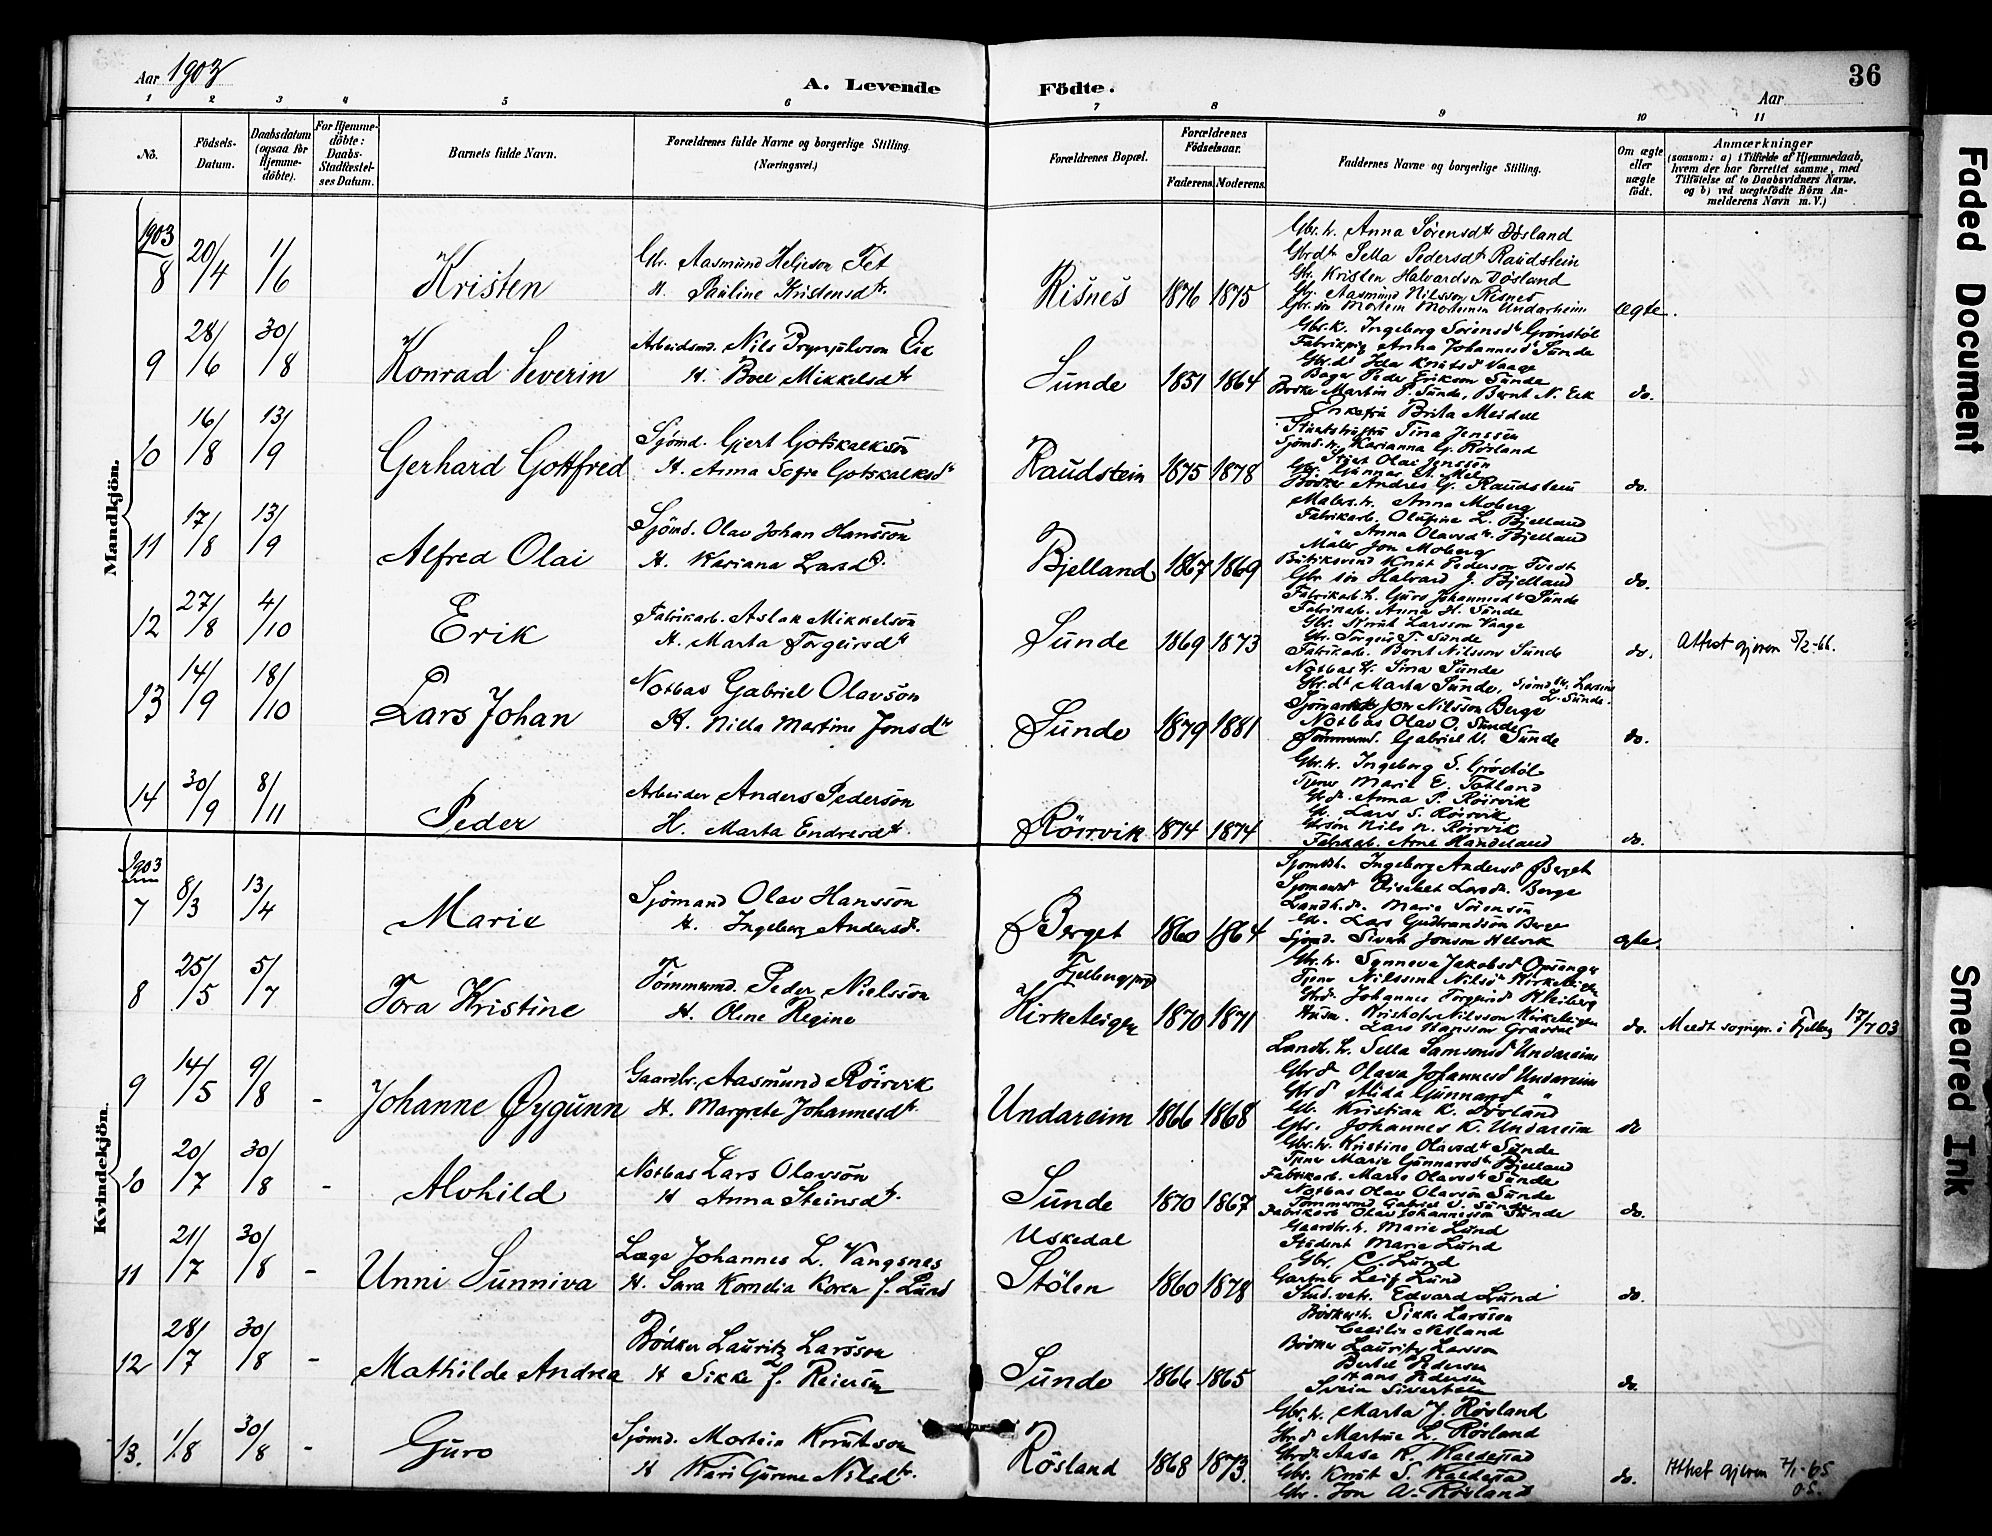 Aar 1903
A. Levende
Födte.
Aar
36
1 2 3 4 5 6 7 8 9 10 11
No.
Födsels-Datum.
Daabsdatum (ogsaa for Hjemme-döbte).
For Hjemme-döbte: Daabs-Stadfæstel-ses Datum.
Barnets fulde Navn.
Forældrenes fulde Navne og borgerlige Stilling. (Næringsvei.)
Forældrenes Bopæl.
Forældrenes Födselsaar.
Faderens. Moderens.
Faddernes Navne og borgerlige Stilling.
Om ægte eller uægte födt.
Anmærkninger
(saasom: a) i Tilfælde af Hjemmedaab, hvem der har forrettet samme, med Tilföielse af to Daabsvidners Navne, og b) ved uægtefödte Börn An-melderens Navn m. V.)
Mandkjön.
1903
8 20/4 1/6 Kristen
Gbr. Aasmund Heljeson Tet
H. Pauline Kristensdtr.
Risnes 1876 1875
Gbr. h. Anna Sörensdtr Døsland
Gbrdtr Sella Pedersdtr Raudstein
Gbr. Kristen Halvardson Døsland
Gbr. Aasmund Nilsson Risnes
Gbr. sön Mortein Morteinsen Undarheim
ægte.
9 28/6 30/8 Konrad Severin
Arbeidsmd. Nils Brynjulvson Eie
H. Boel Mikkelsdtr
Sunde 1851 1864
Gbr. k. Ingeborg Sörensdtr Grönstöl
Fabrikpig Anna Johannesdt Sunde
Gbr. dt Ida Knutsdt Vaage
Bager Peder Erikson Sunde
Bödker Martin P. Sunde, Bernt N. Eik
do.
10 16/8 13/9 Gerhard Gottfred
Sjömd. Gjert Gotskalkson
H. Anna Sofie Gotskalksdtr
Raudstein 1875 1878
Enkefru Brita Meidell
Tina Jenssen
Sjömd. h. Karianna G. Røsland
Olai Jensson
Gbr. Gunnar A. Mel
Bödker Andres G. Raudstein
do.
11 17/8 13/9 Alfred Olai
Sjömd. Olav Johan Hansson
H. Kariana Larsdt.
Bjelland 1867 1869
Maler. h. Anna Moberg
Fabrikarb. Olufine L. Bjelland
" Anna Olavsdtr. Bjelland
Maler Jon Moberg
Butiksvend Knut Pederson Tvedt
Gbr sön Halvard J. Bjelland
do.
12 27/8 4/10 Erik
Fabrikarb. Aslak Mikkelson
H. Marta Torgeirsdtr
Sunde 1869 1873
Fabrikarb. h. Guro Johannesdtr Sunde
Fabrikarb. Anna H. Sunde
Gbr. Larsson Vaage
Gbr. Torgeir T. Sunde
Fabrikarb. Bernt Nilsson Sunde
do.
Attest gjeven 5/2-66.
13 14/9 18/10 Lars Johan
Notbas Gabriel Olavson
H. Nilla Martine Jonsdtr
Sunde 1879 1881
Notbas h. Sina Sunde
Gbr. dt Marta Sunde, Sjömd. h. Larsine L. Sunde.
Sjömand Jon Nilsson Berge
Notbas Olav O. Sunde
Tömmermd. Gabriel V. Sunde
do.
14 30/9 8/11 Peder
Arbeider Anders Pederson
H. Marta Endresdtr.
Röirvik 1874 1874
Gbr. h. Ingeborg S. Grøstöl
Tjener Marie E. Totland
Gbdr. Anna P. Röirvik
Gbr. Lars S. Röirvik
Gbrsön Nils N. Röirvik
Fabrikarb. Arne Handeland
do.
Kvindekjön.
1903
7 8/3 13/4 Marie
Sjömand Olav Hansson
H. Ingeborg Andersdt.
Berget 1860 1864
Sjömdh. Ingeborg Andersdt Berget
Sjömandsd Elisabet Larsdt. Berge
Landh. dt. Marie Sörensen
Gbr. Lars Gudbrandson Berge
Sjömd. Sivert Jonson Helvik
ægte.
8 25/5 5/7 Tora Kristine
Tömmermd. Peder Nielsson
H. Olene Regine
Fjelbergprgj
Kirketeigen 1870 1871
Gbr. h. Synneva Jakobsdt Opsanger
Tjener Nilssine Nilsdtr Kirketeigen
Gbrd. Johannes Torgeirsdt Kleiberg
Husm. Kristofer Nilsson Kirketeigen
Lars Hansson
do.
Meldt sognepr. i Fjelberg 17/7 03
9 14/5 9/8 - Johanne Øygunn
Gaardbr. Aasmund Röirvik
H. Margrete Johannesdtr.
Undareim 1866 1868
Landh. h. Sella Samsonsdt Undareim
Gbrdt Olava Johannesdt Undareim
Gbrdt Alida Gunnarsdt "
Gbr. Kristian K. Døsland
Gbr. Johannes K. Undareim
do
10 20/7 30/8 - Alvhild
Notbas Lars Olavson
H Anna Steinsdtr.
Sunde 1870 1867
Gbr. h. Kristine Olavsdtr Sunde
Tjener Marie Gunnarsdtr Bjelland
Fabrikarb. Marie Olavsdtr Sunde
Notbas Olav Olavson Sunde
Tömmermd Gabriel S. Sunde
Fabrikarb Olav Johannesson Sunde
do.
11 21/7 30/8 - Unni Sunniva
Læge Johannes L. Vangsnes
H. Sara Kornelia Koren f. Lund
Uskedal
Stölen 1860 1878
Gaardbr. h. Marie Lund
Student Marie Lund
Gbr. C. Lund
Gartner Leif Lund
Stud. vetr. Edvard Lund
do.
12 28/7 30/8 - Mathilde Andrea
Bödker Lauritz Larsson
H Sikke f. Reiersen
Sunde 1866 1865
Bödker h. Sikke Larsson
Cecilie Netland
Bödker Lauritz Larsson
Bertel Pedersen
Hans Pedersen
Svein Sivertsen
do.
13. 1/8 30/8 - Guro
Sjömd. Mortein Knutson
H Kari Gurine Nilsdtr.
Røsland 1868 1873.
Gbr. h. Marta J. Røsland
Gbrd Martine L. Røsland
Gbrdtr Aasa K. Kaldestad
Gbr. Knut S. Kaldestad
Gbr. Jon A. Røsland
do.
Attest gjeven 7/1-65
O.S.
Faded Document
Smeared Ink